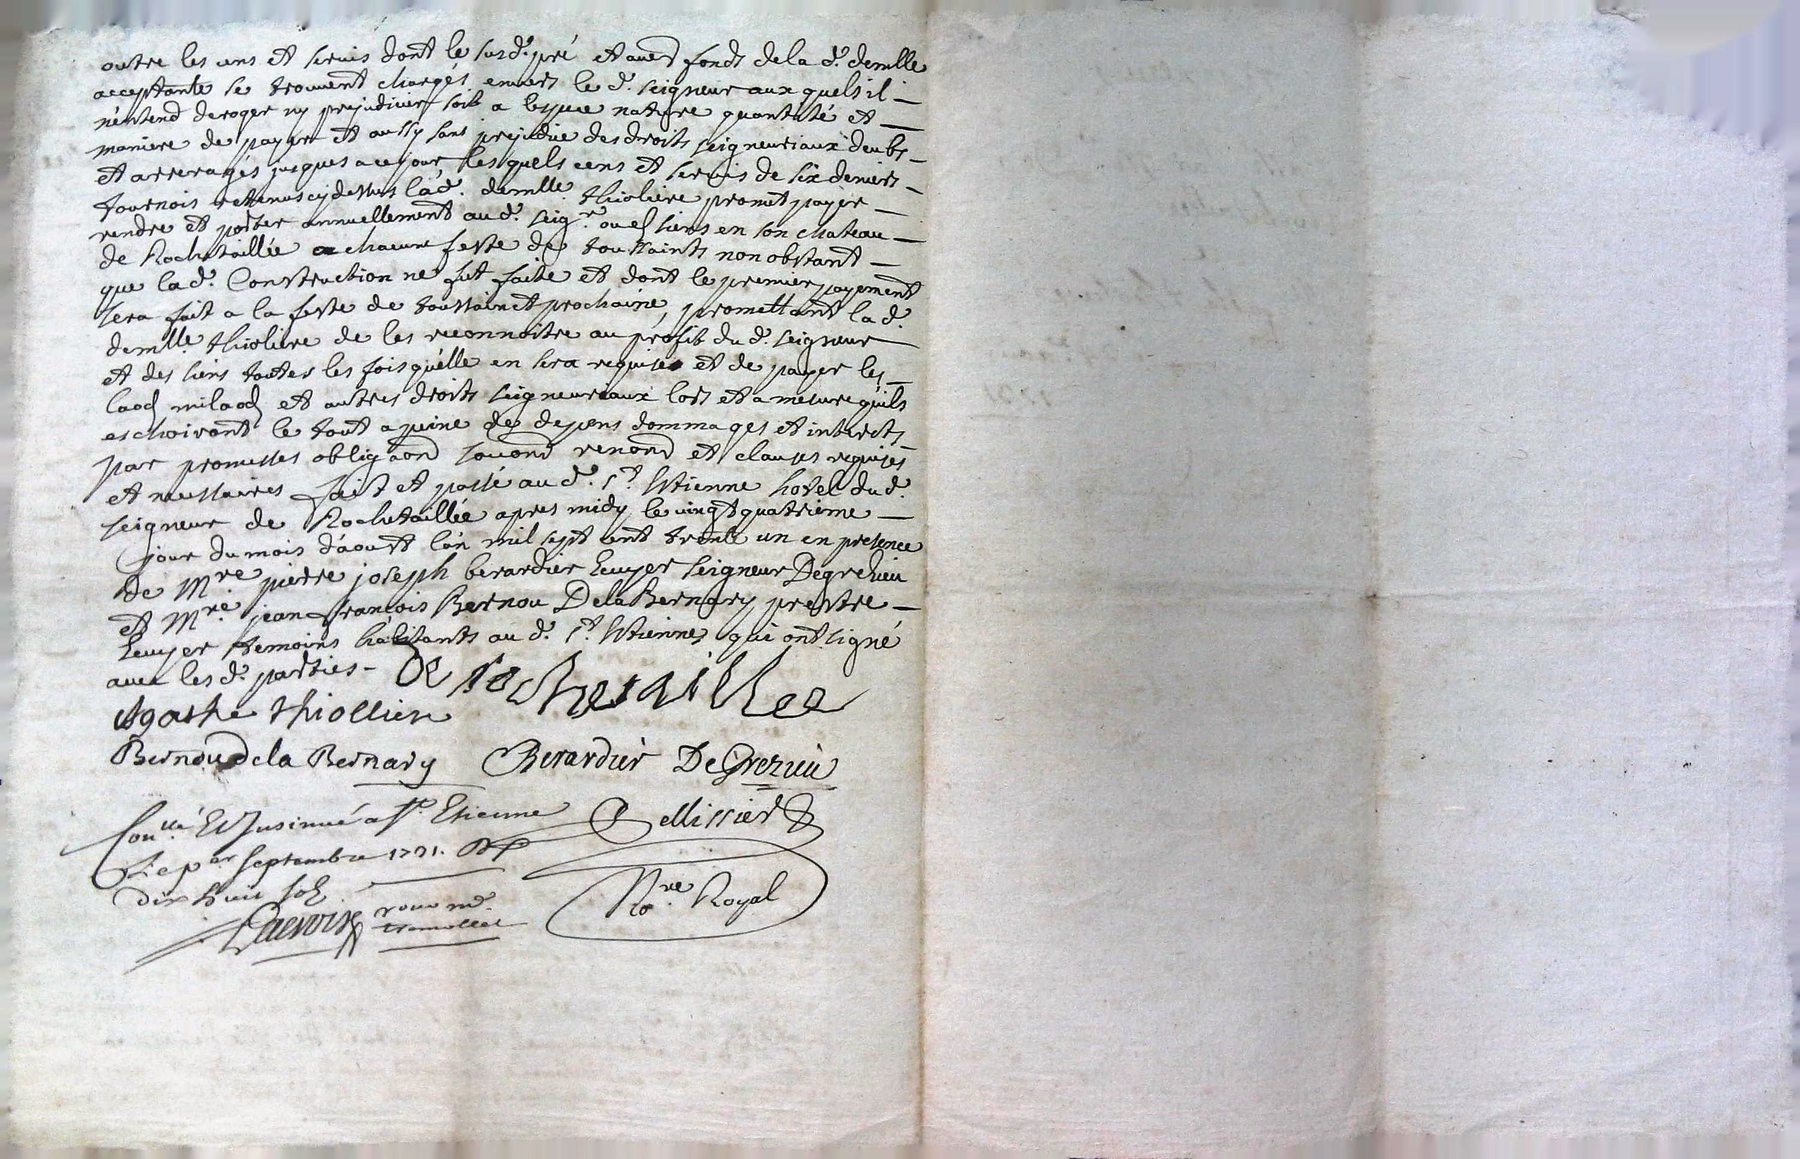 outre les cens et servis dont le susd. pré et autres fonds de la d. demlle
acceptante se trouvent chargés envers le d. seigneur aux quels il
n'entend deroger ny prejudicier soit a lespece nature quantité et
maniere de payer et aussy sans prejudice des droits seigneuriaux deubs
et arreragés jusques a ce jour lesquels cens et servis de six deniers
tournois retenus cy dessus la d. demlle. thioliere promet payer
rendre et porter annuellement au d. seigr. ou es siens en son chateau
de Rochetaillée a chacune feste de toussaints nonobstant
que la d. Construction ne fut faite et dont le premier payement
sera fait a la feste de toussainct prochaine, promettant la d.
demlle. thioliere de les reconnoitre au profit du d. seigneur
et des siens toutes les fois qu'elle en sera requise et de payer les
laods milaods et autres droits seigneuriaux lors et a mesure quils
eschoiront le tout a peine de depens dommages et interets
par promesses obligaon renond et clauses requises
et necessaires fait et passé au d. st. Etienne hotel du d.
seigneur de Rochetaillée apres midy le vingt quatrieme
jour du mois d'aoust l'an mil sept cent trente un en presence
de Mre. pierre joseph berardier Ecuyer seigneur Degrezieu
et Mre. jean francois Bernou DelaBernary prestre
Ecuyer temoins habitants au d. st. Etienne, qui ont signé
avec les d. parties
De rochetaillee
Agathe thiolliere
Bernou de la Bernary Berardier De Grezieu
Conllé Et Insinué a st. Etienne Pellissier
Le per septembre 1731. R
dix huit sols
No.re Royal